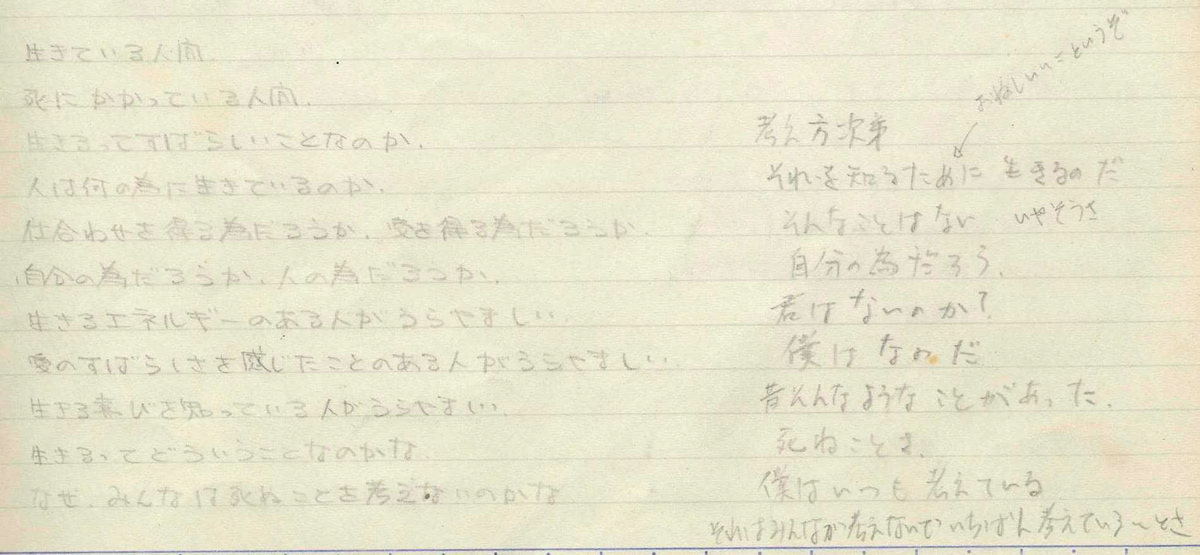 生きている人間.
死にかかっている人間.
生きるってすばらしいことなのか.
人は何の為に生きているのか.
仕合わせを得る為だろうか. 愛を得る為だろうか.
自分の為だろうか. 人の為だろうか.
生きるエネルギーのある人がうらやましい.
愛のすばらしさを感じたことのある人がうらやましい.
生きる喜びを知っている人がうらやましい.
生きるってどういうことなのかな.
なぜ. みんなは死ぬことを考えないのかな
というぞ
考え方次第
それを知るために生きるのだ
そんなことはない いやそうさ
自分の為だろう.
君はないのか?
僕は だ
昔そんなようなことがあった.
死ぬことさ.
僕はいつも考えている
それはみんなが考えないで いちばん考えている とさ